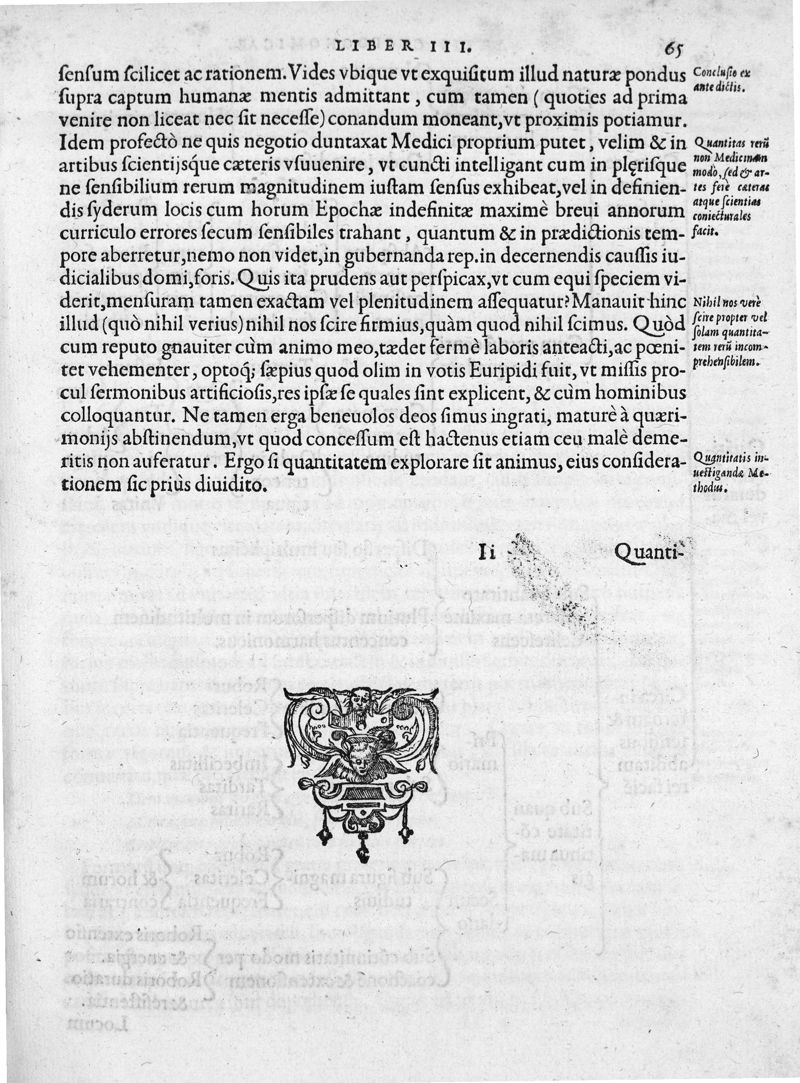 LIBER III. 65
ſenſum ſcilicet ac rationem. Vides vbique vt exquiſitum illud naturæ pondus
ſupra captum humanæ mentis admittant, cum tamen (quoties ad prima
venire non liceat nec ſit neceſſe) conandum moneant, vt proximis potiamur.
Idem profectò ne quis negotio duntaxat Medici proprium putet, velim & in
artibus ſcientijsq́ue cæteris vſuuenire, vt cuncti intelligant cum in plęriſque
ne ſenſibilium rerum magnitudinem iuſtam ſenſus exhibeat, vel in definien-
dis ſyderum locis cum horum Epochæ indefinitæ maximè breui annorum
curriculo errores ſecum ſenſibiles trahant, quantum & in prædictionis tem-
pore aberretur, nemo non videt, in gubernanda rep. in decernendis cauſsis iu-
dicialibus domi, foris. Quis ita prudens aut perſpicax, vt cum equi ſpeciem vi-
derit, menſuram tamen exactam vel plenitudinem aſſequatur? Manauit hinc
illud (quò nihil verius) nihil nos ſcire firmius, quàm quod nihil ſcimus. Quòd
cum reputo gnauiter cùm animo meo, tædet fermè laboris anteacti, ac pœni-
tet vehementer, optoq́; ſæpius quod olim in votis Euripidi fuit, vt miſsis pro-
cul ſermonibus artificioſis, res ipſæ ſe quales ſint explicent, & cùm hominibus
colloquantur. Ne tamen erga beneuolos deos ſimus ingrati, maturè à quæri-
monijs abſtinendum, vt quod conceſſum eſt hactenus etiam ceu malè deme-
ritis non auferatur. Ergo ſi quantitatem explorare ſit animus, eius conſidera-
tionem ſic priùs diuidito.
Ii Quanti-
Concluſio ex
ante dictis.
Quantitas rerũ
non Medicinam
modò, ſed & ar-
tes ferè cæteras
atque ſcientias
coniecturales
facit.
Nihil nos verè
ſcire propter vel
ſolam quantita-
tem rerũ incom-
prehenſibilem.
Quantitatis in-
ueſtigandæ Me-
thodus.